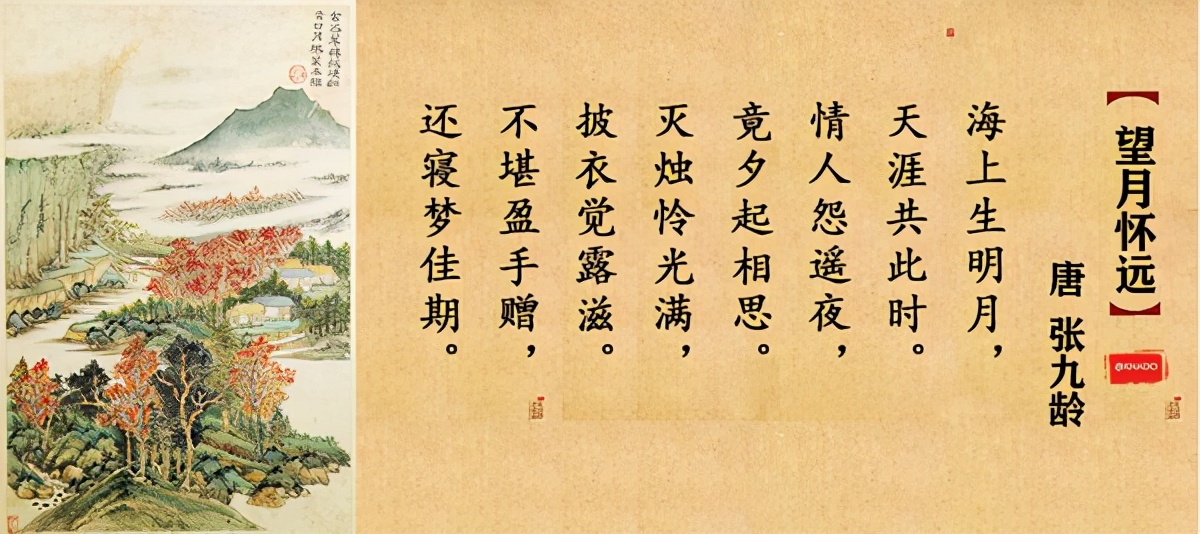 【望月怀远】
唐 张九龄
海上生明月，
天涯共此时。
情人怨遥夜，
竟夕起相思。
灭烛怜光满，
披衣觉露滋。
不堪盈手赠，
还寝梦佳期。